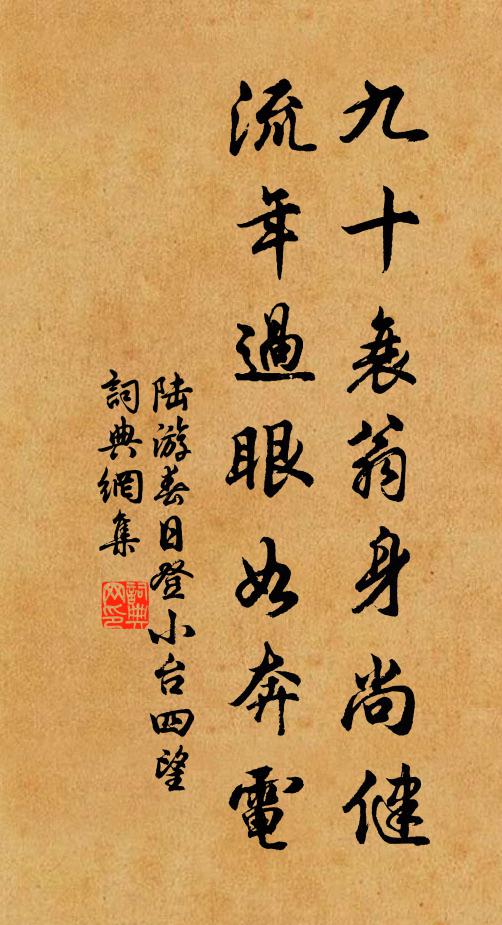 九十衰翁身尚健
流年過眼如奔電
陆游春日登小台四望
詞典網集
詞典
网印